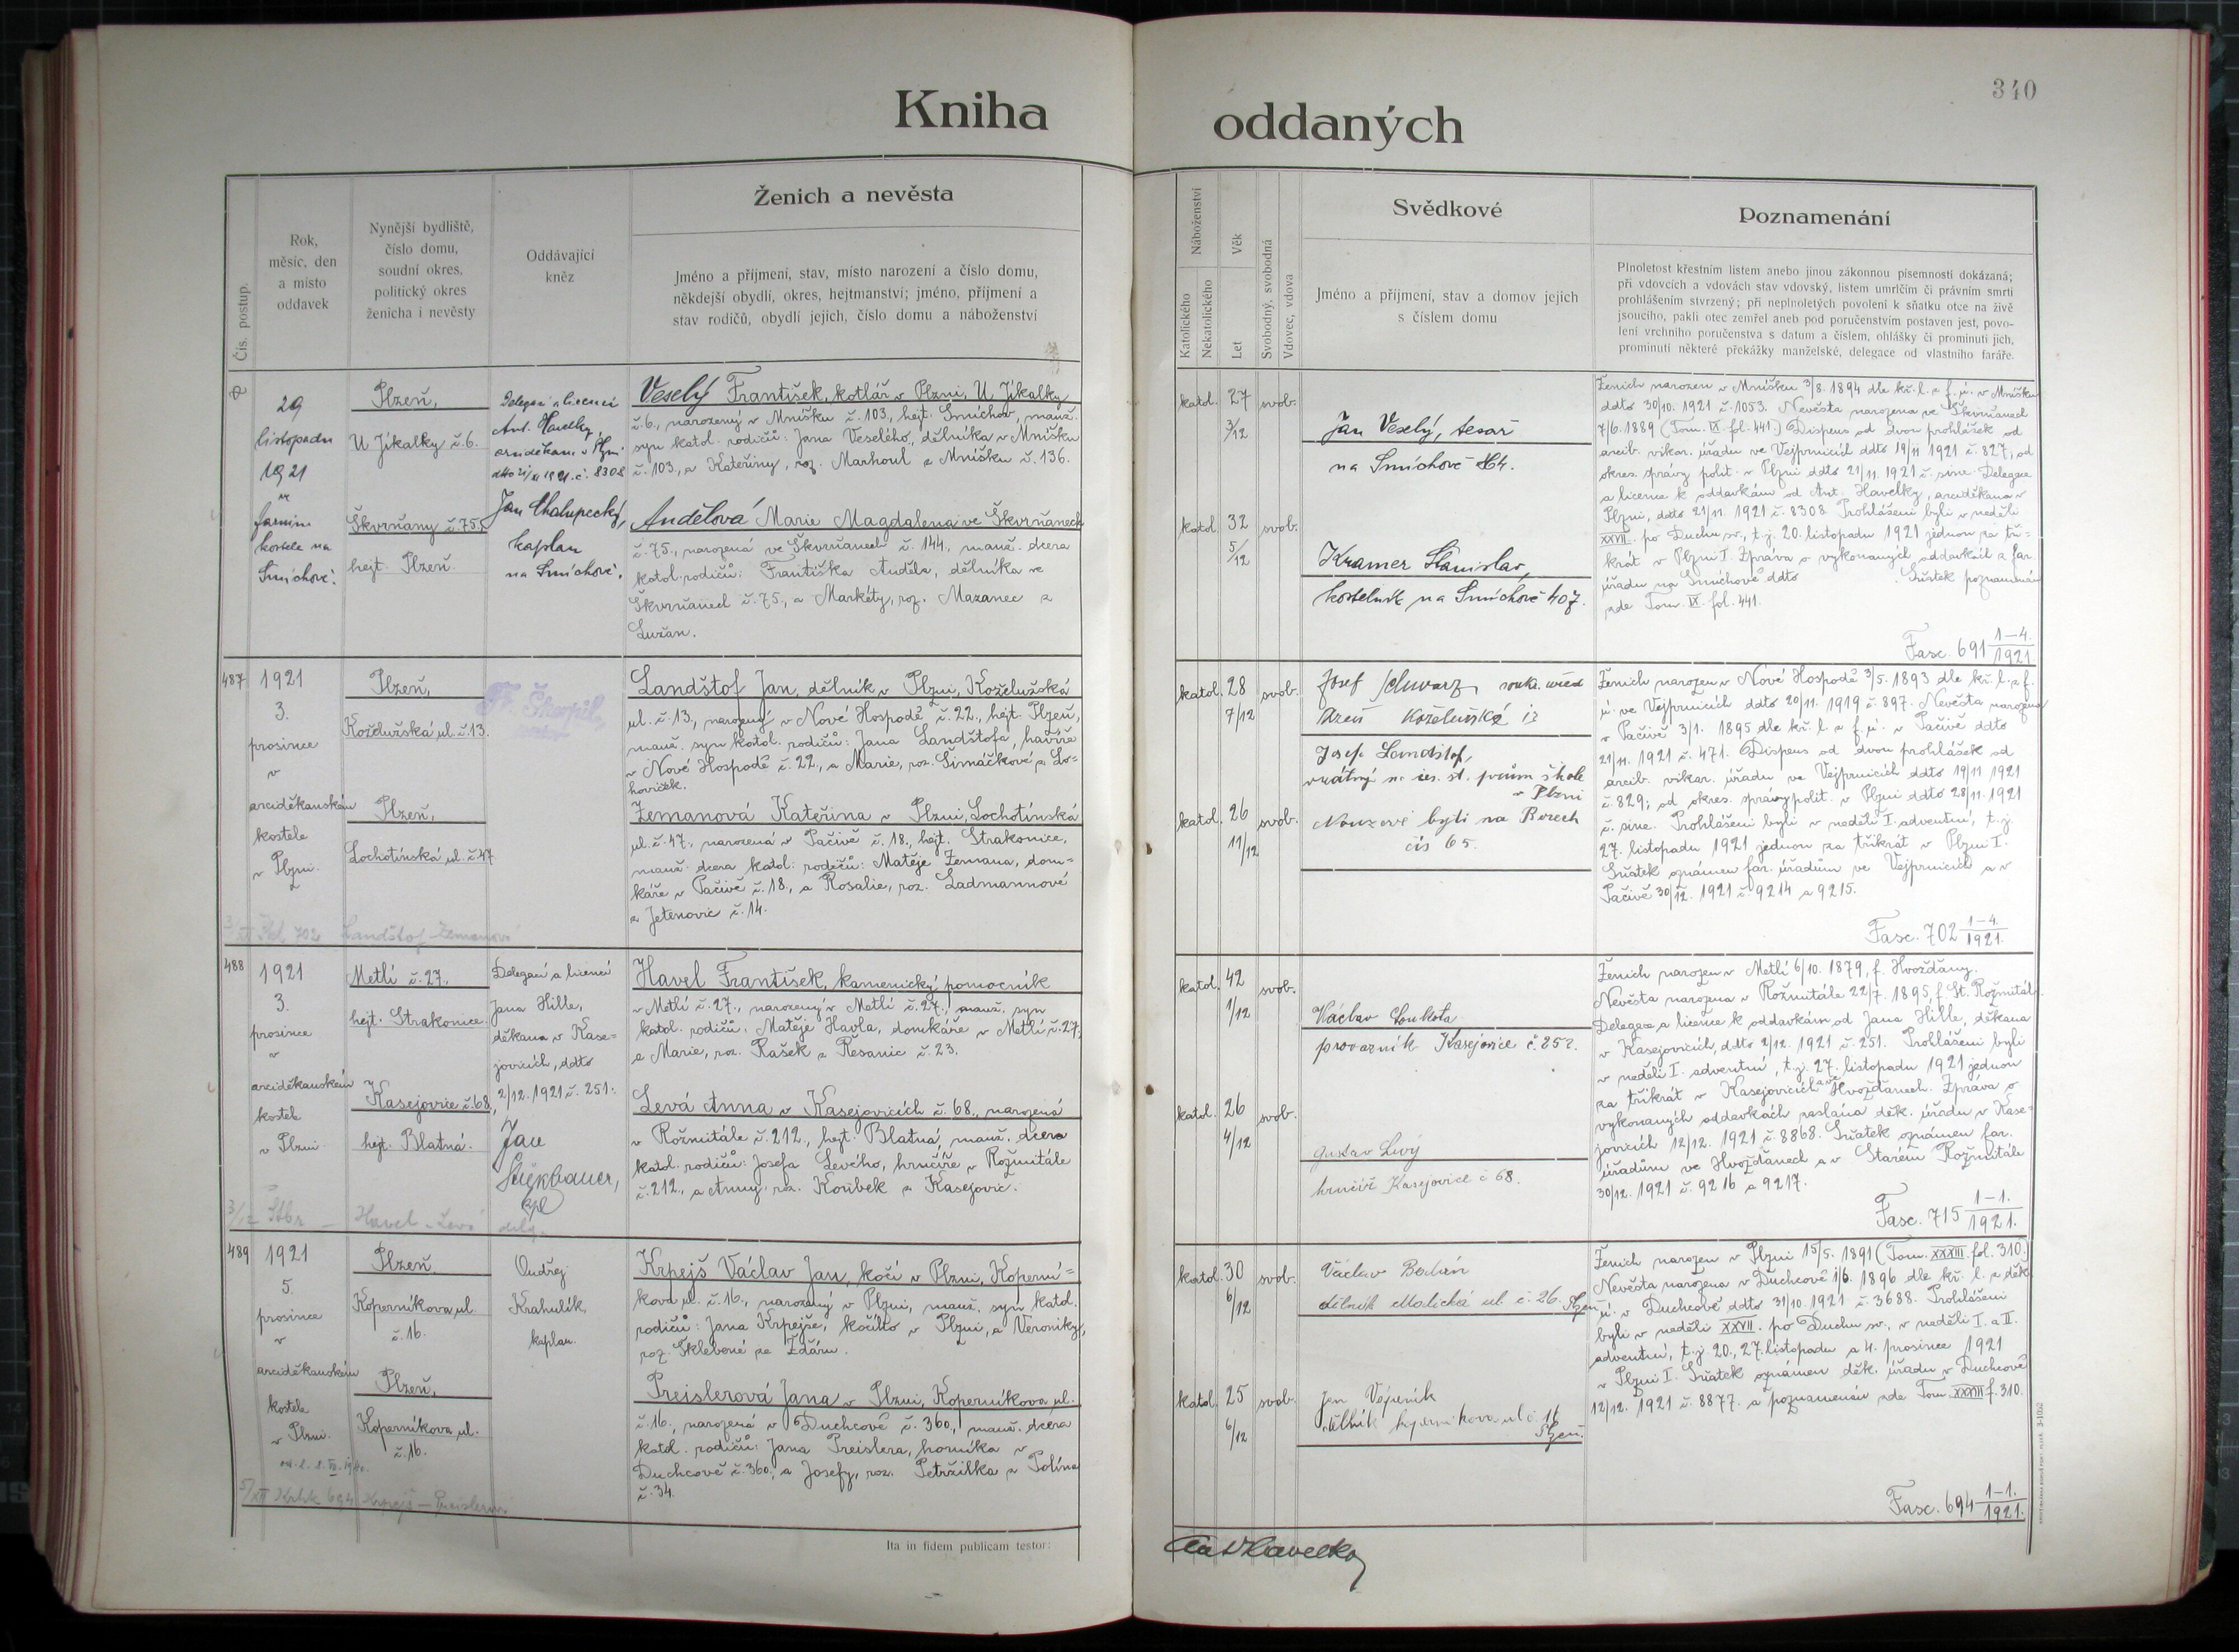 340
Kniha oddaných
Čís. postup.
Rok,
měsíc, den
a místo
oddavek
Nynější bydliště,
číslo domu,
soudní okres,
politický okres
ženicha i nevěsty
Oddávající
kněz
Ženich a nevěsta
Jméno a příjmení, stav, místo narození a číslo domu,
někdejší obydlí, okres, hejtmanství; jméno, příjmení a
stav rodičů, obydlí jejich, číslo domu a náboženství
Náboženství
Katolického
Nekatolického
Věk
Let
Svobodný, svobodná
Vdovec, vdova
Svědkové
Jméno a příjmení, stav a domov jejich
s číslem domu
Poznamenání
Plnoletost křestním listem anebo jinou zákonnou písemností dokázaná;
při vdovcích a vdovách stav vdovský, listem úmrlčím či právním smrti
prohlášením stvrzený; při neplnoletých povolení k sňatku otce na živě
jsoucího, pakli otec zemřel aneb pod poručenstvím postaven jest, povo-
lení vrchního poručenstva s datum a číslem, ohlášky či prominutí jich,
prominutí některé překážky manželské, delegace od vlastního faráře.
29
listopadu
1921
ve
farním
kostele na
Smíchově.
Plzeň,
U Jíkalky č. 6.
Škvrňany č. 75.
hejt. Plzeň.
Delegací a licencí
Ant. Havelky,
arciděkana v Plzni
ddto 21/XI 1921 č. 8308
Jan Chalupecký,
kaplan
na Smíchově.
Veselý František, kotlář v Plzni, U Jíkalky
č. 6., narozený v Mníšku č. 103, hejt. Smíchov, manž.
syn katol. rodičů: Jana Veselého, dělníka v Mníšku
č. 103., a Kateřiny, roz. Marhoul z Mníšku č. 136.
Andělová Marie Magdalena ve Škvrňanech
č. 75., narozená ve Škvrňanech č. 144., manž. dcera
katol. rodičů: Františka Anděla, dělníka ve
Škvrňanech č. 75., a Markéty, roz. Mazanec z
Lužan.
katol. 27 svob.
3/12
katol. 32 svob.
5/12
Jan Veselý, tesař
na Smíchově
Kramer Stanislav,
kostelník na Smíchově 407.
Ženich narozen v Mníšku 3/8. 1894 dle kř. l. z f. ú. v Mníšku
ddto 30/10. 1921 č. 1053. Nevěsta narozena ve Škvrňanech
7/6. 1889 (Tom. IX. fol. 441.) Dispens od dvou prohlášek od
arcib. vikar. úřadu ve Vejprnicích ddto 19/11 1921 č. 827; od
okres. správy polit. v Plzni ddto 21/11. 1921 č. sine. Delegace
a licence k oddavkám od Ant. Havelky, arciděkana v
Plzni, ddto 21/11. 1921 č. 8308. Prohlášeni byli v neděli
XXVII. po Duchu sv., t. j. 20. listopadu 1921 jednou za tři-
krát v Plzni I. Zpráva o vykonaných oddavkách z far.
úřadu na Smíchově ddto . Sňatek poznamenán
zde Tom. IX. fol. 441.
Fasc. 691 1–4./1921
487
1921
3.
prosince
v
arciděkanském
kostele
v Plzni.
Plzeň,
Koželužská ul. č. 13.
Plzeň,
Lochotínská ul. č. 47
Fr. Škarpil,
Landštof Jan, dělník v Plzni, Koželužská
ul. č. 13., narozený v Nové Hospodě č. 22., hejt. Plzeň,
manž. syn katol. rodičů: Jana Landštofa, havíře
v Nové Hospodě č. 22., a Marie, roz. Šimáčkové z Lo-
hoviček.
Zemanová Kateřina v Plzni, Lochotínská
ul. č. 47., narozená v Pačivě č. 18., hejt. Strakonice,
manž. dcera katol. rodičů: Matěje Zemana, dom-
káře v Pačivě č. 18., a Rosalie, roz. Ladmannové
z Jetenovic č. 14.
702 Landštof-Zemanová
katol. 28 svob.
7/12
katol. 26 svob.
11/12
Josef Schwarz
Koželužská 12
Josef Landštof,
vrátný škole
v Plzni
Nouzové byti na Borech
čís 65.
Ženich narozen v Nové Hospodě 3/5. 1893 dle kř. l. z f.
ú. ve Vejprnicích ddto 20/11. 1919 č. 897. Nevěsta narozena
v Pačivě 3/1. 1895 dle kř. l. z f. ú. v Pačivě ddto
21/11. 1921 č. 471. Dispens od dvou prohlášek od
arcib. vikar. úřadu ve Vejprnicích ddto 19/11 1921
č. 829; od okres. správy polit. v Plzni ddto 28/11. 1921
č. sine. Prohlášeni byli v neděli I. adventní, t. j.
27. listopadu 1921 jednou za třikrát v Plzni I.
Sňatek oznámen far. úřadům ve Vejprnicích a v
Pačivě 30/12. 1921 č. 9214 a 9215.
Fasc. 702 1–4./1921.
488
1921
3.
prosince
v
arciděkanském
kostele
v Plzni
Metlí č. 27.,
hejt. Strakonice.
Kasejovice č. 68.,
hejt. Blatná.
Delegací a licencí
Jana Hille,
děkana v Kase-
jovicích, ddto
2/12. 1921 č. 251.
Jan
kpl
Havel František, kamenický pomocník
v Metlí č. 27., narozený v Metlí č. 27., manž. syn
katol. rodičů: Matěje Havla, domkáře v Metlí č. 27,
a Marie, roz. Rašek z Řesanic č. 23.
Levá Anna v Kasejovicích č. 68., narozená
v Rožmitále č. 212., hejt. Blatná, manž. dcera
katol. rodičů: Josefa Levého, hrnčíře v Rožmitále
č. 212., a Anny, roz. Koubek z Kasejovic.
Havel - Levá
katol. 42 svob.
1/12
katol. 26 svob.
4/12
Václav Loukota
provazník Kasejovice č. 252.
Gustav Levý
hrnčíř Kasejovice č 68.
Ženich narozen v Metlí 6/10. 1879, f. Hvožďany.
Nevěsta narozena v Rožmitále 22/7. 1895, f. St. Rožmitál.
Delegace a licence k oddavkám od Jana Hille, děkana
v Kasejovicích, ddto 2/12. 1921 č. 251. Prohlášeni byli
v neděli I. adventní, t. j. 27. listopadu 1921 jednou
za třikrát v Kasejovicích a ve Hvožďanech. Zpráva o
vykonaných oddavkách zaslána děk. úřadu v Kase-
jovicích 12/12. 1921 č. 8868. Sňatek oznámen far.
úřadům ve Hvožďanech a v Starém Rožmitále
30/12. 1921 č. 9216 a 9217.
Fasc. 715 1–1./1921.
489
1921
5.
prosince
v
arciděkanském
kostele
v Plzni.
Plzeň.
Koperníkova ul.
č. 16.
Plzeň,
Koperníkova ul.
č. 16.
Ondřej
Krahulík,
kaplan.
Krpejš Václav Jan, kočí v Plzni, Koperní-
kova ul. č. 16., narozený v Plzni, manž. syn katol.
rodičů: Jana Krpejše, kočího v Plzni, a Veroniky,
roz. Šklebené ze Ždáru.
Preislerová Jana v Plzni, Koperníkova ul.
č. 16., narozená v Duchcově č. 360., manž. dcera
katol. rodičů: Jana Preislera, horníka v
Duchcově č. 360., a Josefy, roz. Petržilka z Polína
č. 34.
694 Krpejš – Preislerová
katol. 30 svob.
6/12
katol. 25 svob.
6/12
Václav
dělník Malická ul. č. 26. Plzeň
Jan
Koperníkova ul č. 16
Plzeň.
Ženich narozen v Plzni 15/5. 1891 (Tom. XXXIII. fol. 310.)
Nevěsta narozena v Duchcově 1/6. 1896 dle kř. l. z děk.
ú. v Duchcově ddto 31/10. 1921 č. 3688. Prohlášeni
byli v neděli XXVII. po Duchu sv., v neděli I. a II.
adventní, t. j. 20., 27. listopadu a 4. prosince 1921
v Plzni I. Sňatek oznámen děk. úřadu v Duchcově
12/12. 1921 č. 8877. a poznamenán zde Tom. XXXIII f. 310.
Fasc. 694 1–1./1921.
Ita in fidem publicam testor:
Ant Havelka